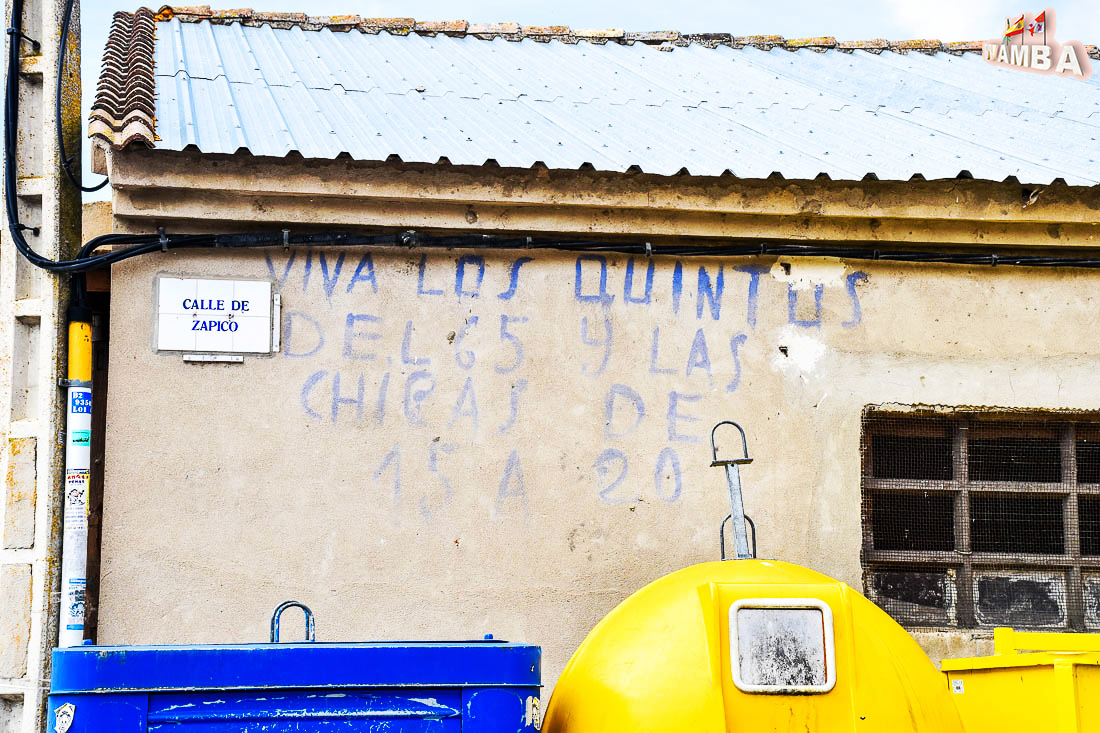 WAMBA
CALLE DE
ZAPICO
VIVA LOS QUINTOS
DEL 65 Y LAS
CHICAS DE
15 A 20